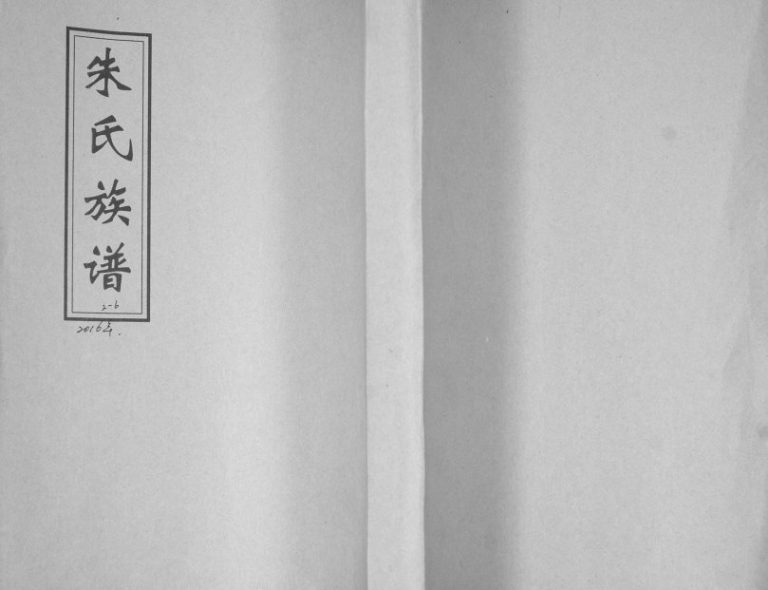 朱氏族谱
2-6
2016年.